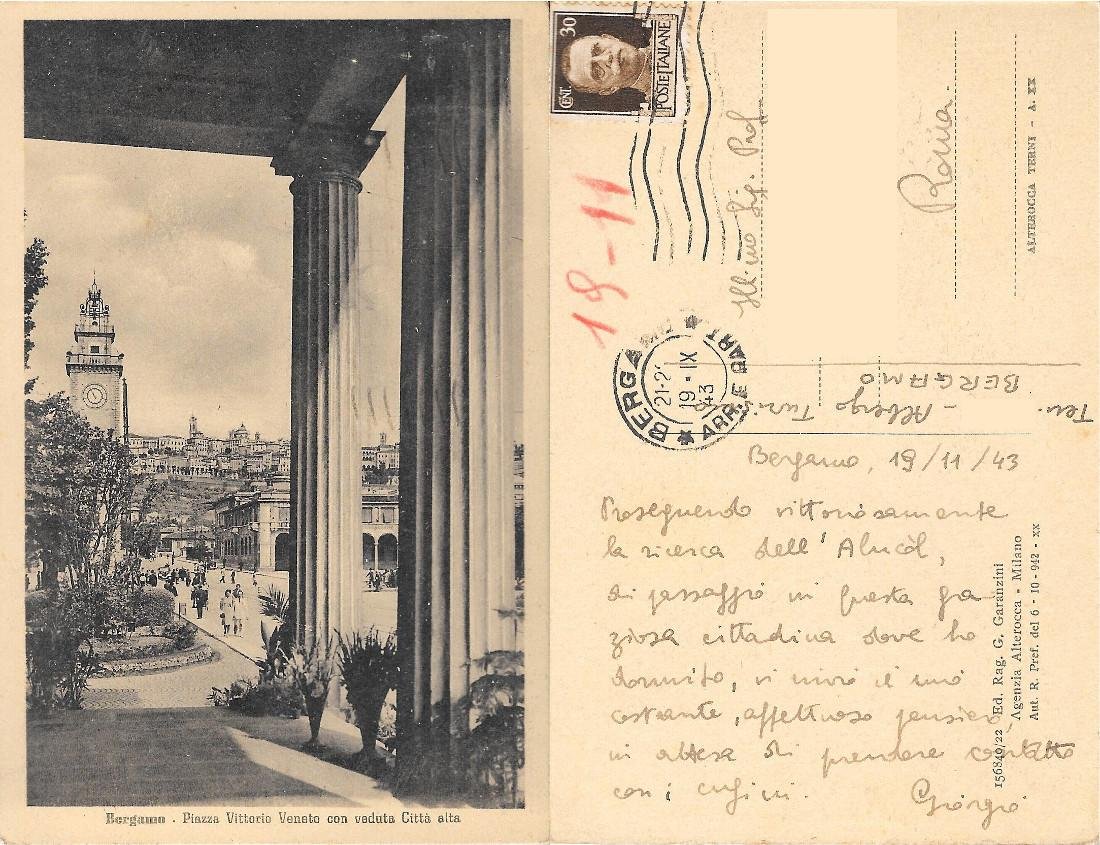 Bergamo - Piazza Vittorio Veneto con veduta Città alta
CENT. 30
POSTE ITALIANE
18-11
BERGAMO
ARR. E PART.
21-2
19-IX
43
Ill.mo Sig. Prof
Roma.
ALTEROCCA TERNI - A. XX
Albergo
BERGAMO
Bergamo, 19/11/43
Proseguendo vittoriosamente
la ricerca dell'Alucòl,
di passaggio in questa gra
ziosa cittadina dove ho
dormito, vi invio il mio
costante, affettuoso pensiero
in attesa di prendere contatto
con i cugini.
Giorgio
156840/22 Ed. Rag. G. Garanzini
Agenzia Alterocca - Milano
Aut. R. Pref. del 6-10-942-XX